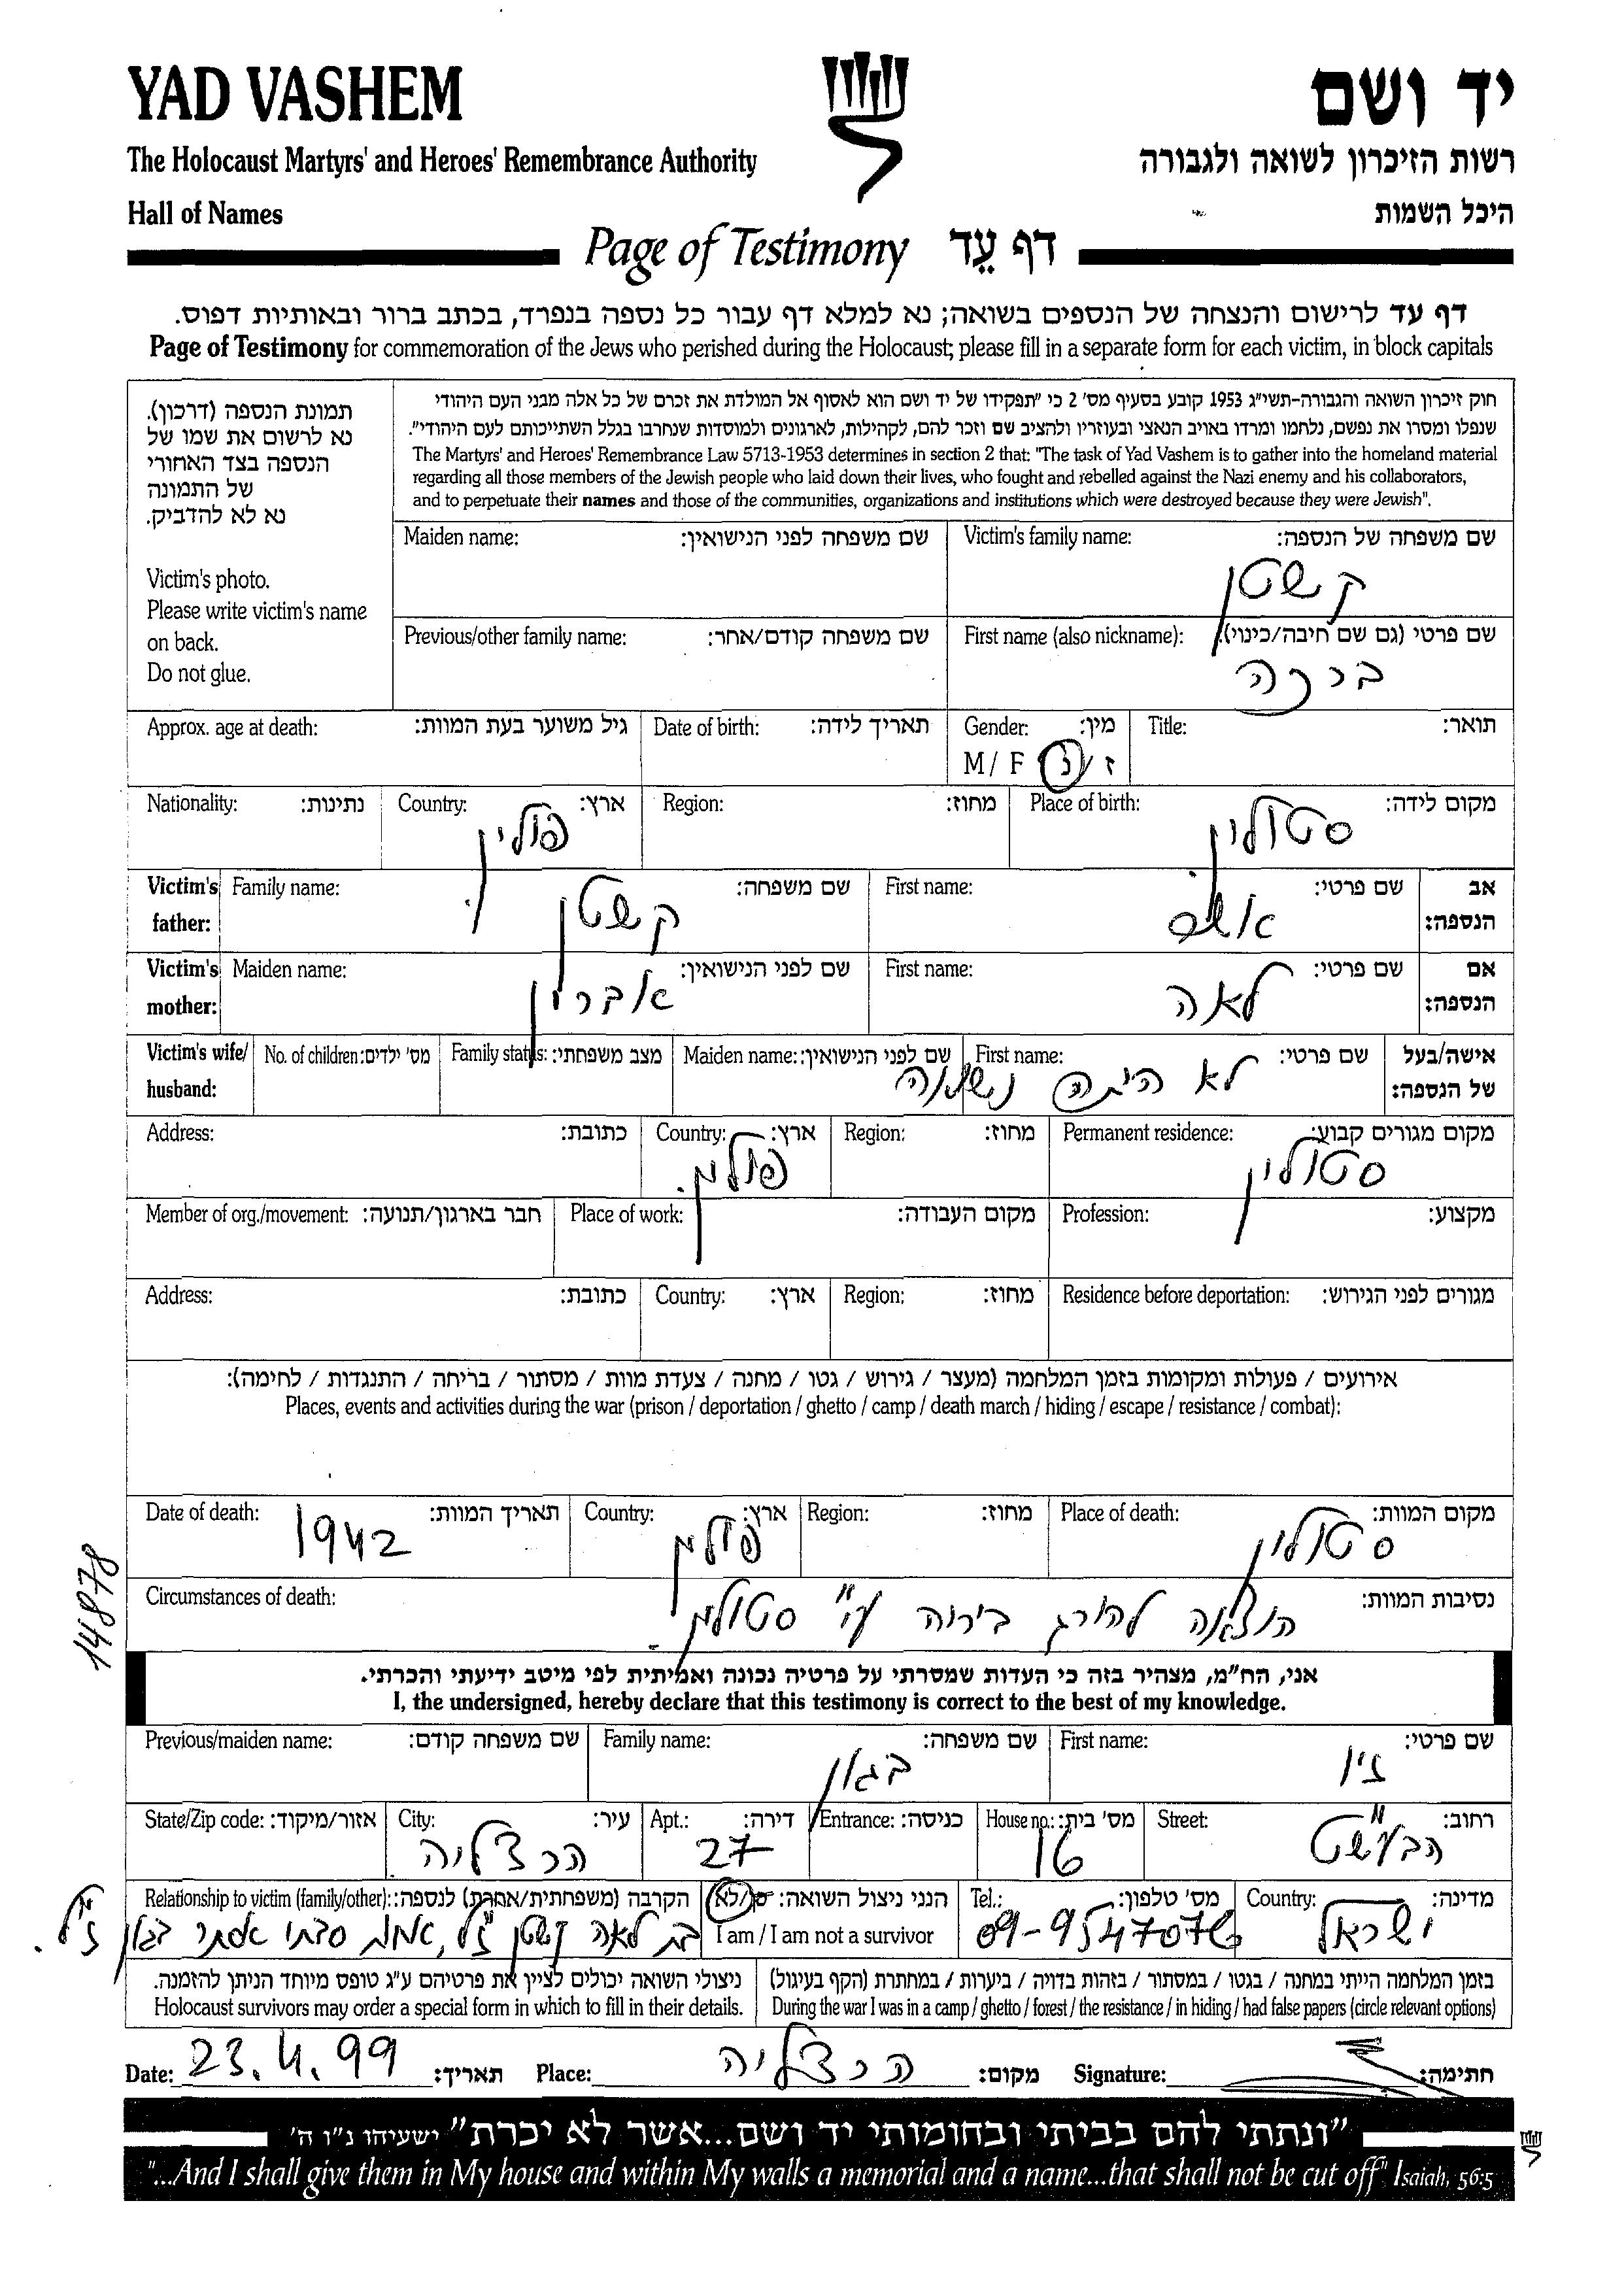 YAD VASHEM
יד ושם
The Holocaust Martyrs' and Heroes' Remembrance Authority
רשות הזיכרון לשואה ולגבורה
Hall of Names
היכל השמות
Page of Testimony דף עֵד
דף עד לרישום והנצחה של הנספים בשואה; נא למלא דף עבור כל נספה בנפרד, בכתב ברור ובאותיות דפוס.
Page of Testimony for commemoration of the Jews who perished during the Holocaust; please fill in a separate form for each victim, in block capitals
תמונת הנספה (דרכון).
נא לרשום את שמו של
הנספה בצד האחורי
של התמונה
נא לא להדביק.
Victim's photo.
Please write victim's name
on back.
Do not glue.
חוק זיכרון השואה והגבורה-תשי"ג 1953 קובע בסעיף מס' 2 כי "תפקידו של יד ושם הוא לאסוף אל המולדת את זכרם של כל אלה מבני העם היהודי
שנפלו ומסרו את נפשם, נלחמו ומרדו באויב הנאצי ובעוזריו ולהציב שם וזכר להם, לקהילות, לארגונים ולמוסדות שנחרבו בגלל השתייכותם לעם היהודי".
The Martyrs' and Heroes' Remembrance Law 5713-1953 determines in section 2 that: "The task of Yad Vashem is to gather into the homeland material
regarding all those members of the Jewish people who laid down their lives, who fought and rebelled against the Nazi enemy and his collaborators,
and to perpetuate their names and those of the communities, organizations and institutions which were destroyed because they were Jewish".
Maiden name: שם משפחה לפני הנישואין: Victim's family name: שם משפחה של הנספה:
קשטן
Previous/other family name: שם משפחה קודם/אחר: First name (also nickname): שם פרטי (גם שם חיבה/כינוי):
ברכה
Approx. age at death: גיל משוער בעת המוות: Date of birth: תאריך לידה: Gender: מין: Title: תואר:
M / F ז / נ
Nationality: נתינות: Country: ארץ: Region: מחוז: Place of birth: מקום לידה:
פולין סטולין
Victim's father: Family name: שם משפחה: First name: שם פרטי: אב הנספה:
קשטן אשר
Victim's mother: Maiden name: שם לפני הנישואין: First name: שם פרטי: אם הנספה:
לאה
Victim's wife/ husband: No. of children: מס' ילדים: Family status: מצב משפחתי: Maiden name: שם לפני הנישואין: First name: שם פרטי: אישה/בעל של הנספה:
לא היתה נשואה
Address: כתובת: Country: ארץ: Region: מחוז: Permanent residence: מקום מגורים קבוע:
פולין. סטולין
Member of org./movement: חבר בארגון/תנועה: Place of work: מקום העבודה: Profession: מקצוע:
Address: כתובת: Country: ארץ: Region: מחוז: Residence before deportation: מגורים לפני הגירוש:
אירועים / פעולות ומקומות בזמן המלחמה (מעצר / גירוש / גטו / מחנה / צעדת מוות / מסתור / בריחה / התנגדות / לחימה):
Places, events and activities during the war (prison / deportation / ghetto / camp / death march / hiding / escape / resistance / combat):
Date of death: תאריך המוות: Country: ארץ: Region: מחוז: Place of death: מקום המוות:
1942 פולין סטולין
Circumstances of death: נסיבות המוות:
הוצאה להורג ביריה ע"י סטולין.
14878
אני, הח"מ, מצהיר בזה כי העדות שמסרתי על פרטיה נכונה ואמיתית לפי מיטב ידיעתי והכרתי.
I, the undersigned, hereby declare that this testimony is correct to the best of my knowledge.
Previous/maiden name: שם משפחה קודם: Family name: שם משפחה: First name: שם פרטי:
בגון זיו
State/Zip code: אזור/מיקוד: City: עיר: Apt.: דירה: Entrance: כניסה: House no.: מס' בית: Street: רחוב:
הרצליה 27 16 הבעש"ט
Relationship to victim (family/other): הקרבה (משפחתית/אחרת) לנספה: הנני ניצול השואה: כן/לא Tel.: מס' טלפון: Country: מדינה:
בת לאה קשטן ז"ל, אחות סבתי אסתר בגון ז"ל.
I am / I am not a survivor
09-9547076 ישראל
ניצולי השואה יכולים לציין את פרטיהם ע"ג טופס מיוחד הניתן להזמנה.
Holocaust survivors may order a special form in which to fill in their details.
בזמן המלחמה הייתי במחנה / בגטו / במסתור / בזהות בדויה / ביערות / במחתרת (הקף בעיגול)
During the war I was in a camp / ghetto / forest / the resistance / in hiding / had false papers (circle relevant options)
Date: 23.4.99 תאריך: Place: הרצליה מקום: Signature: חתימה:
"ונתתי להם בביתי ובחומותי יד ושם...אשר לא יכרת" ישעיהו נ"ו ה'
"...And I shall give them in My house and within My walls a memorial and a name...that shall not be cut off" Isaiah, 56:5